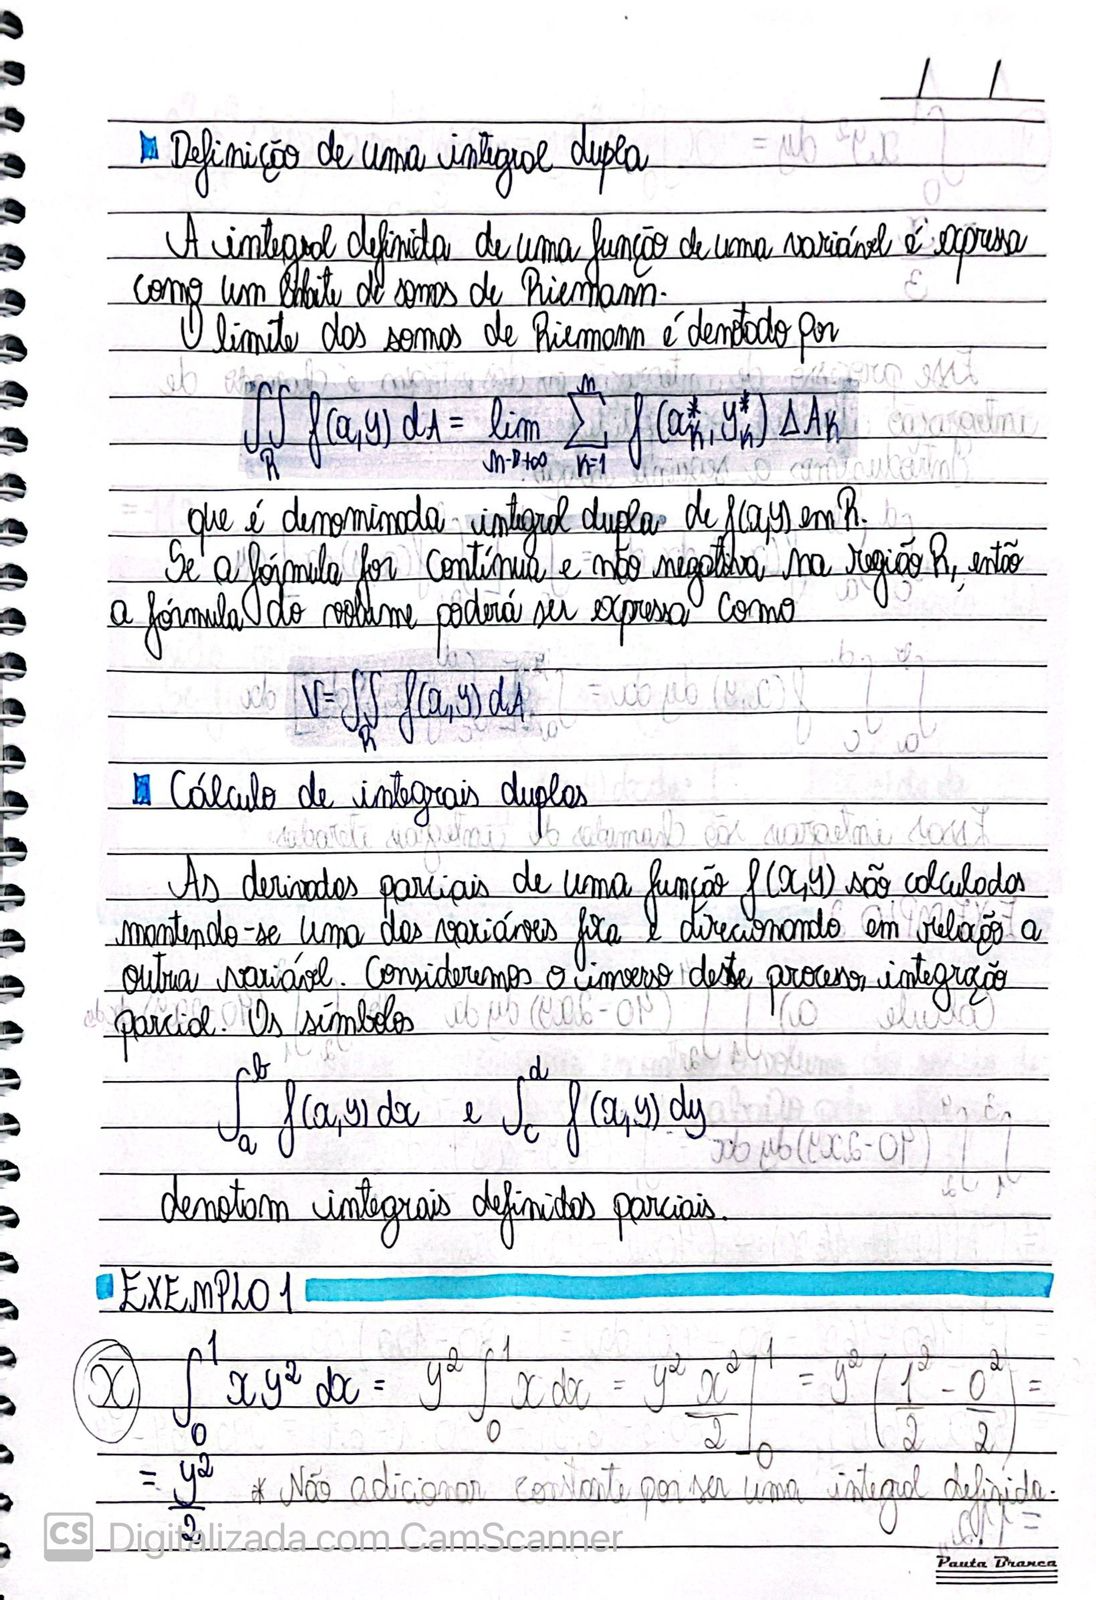 Definição de uma integral dupla
A integral definida de uma função de uma variável é expressa
como um limite de somas de Riemann.
O limite das somas de Riemann é denotado por
∬_R f(x,y) dA = lim_{n→+∞} ∑_{k=1}^{n} f(x_k^*, y_k^*) ΔA_k
que é denominada integral dupla de f(x,y) em R.
Se a fórmula for contínua e não negativa na região R, então
a fórmula do volume poderá ser expressa como
V = ∬_R f(x,y) dA
Cálculo de integrais duplas
As derivadas parciais de uma função f(x,y) são calculadas
mantendo-se uma das variáveis fixa e direcionando em relação a
outra variável. Consideremos o inverso deste processo, integração
parcial. Os símbolos
∫_a^b f(x,y) dx e ∫_c^d f(x,y) dy
denotam integrais definidas parciais.
EXEMPLO 1
x ∫_0^1 xy² dx = y² ∫_0^1 x dx = y² x²/2 ]_0^1 = y² (1²/2 - 0²/2) =
= y²/2 * Não adicionar constante por ser uma integral definida.
CS Digitalizada com CamScanner
Pauta Branca